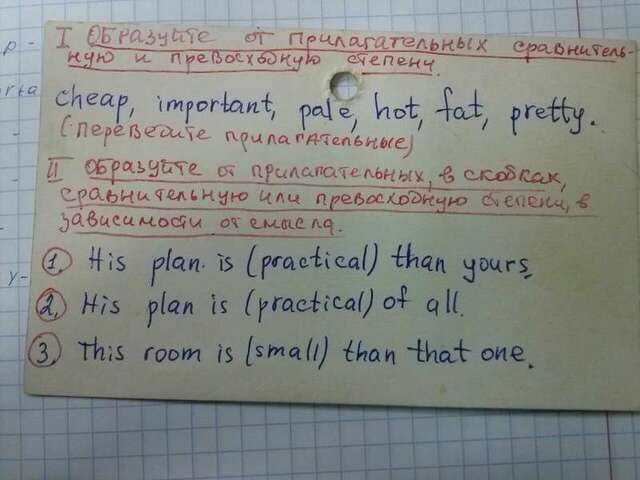 р -
rta
-
-
y-
I Образуйте от прилагательных сравнитель-
ную и превосходную степени.
cheap, important, pale, hot, fat, pretty.
(Переведите прилагательные)
II Образуйте от прилагательных, в скобках,
сравнительную или превосходную степени, в
зависимости от смысла.
1. His plan is (practical) than yours.
2. His plan is (practical) of all.
3. This room is (small) than that one.